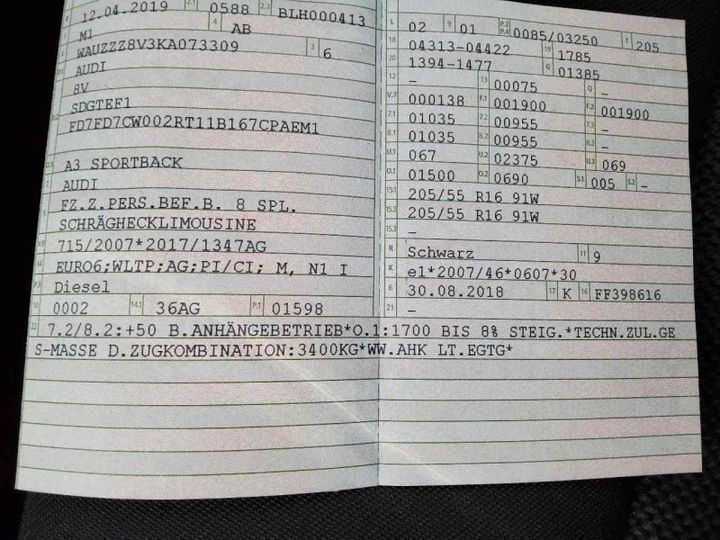 B 12.04.2019 2.1 0588 2.2 BLH000413
J M1 4 AB
E WAUZZZ8V3KA073309 3 6
D.1 AUDI
8V
D.2 SDGTEF1
FD7FD7CW002RT11B167CPAEM1
D.3 A3 SPORTBACK
2 AUDI
5 FZ.Z.PERS.BEF.B. 8 SPL.
SCHRÄGHECKLIMOUSINE
V.9 715/2007*2017/1347AG
14 EURO6;WLTP;AG;PI/CI; M, N1 I
P.3 Diesel
10 0002 14.1 36AG P.1 01598
L 02 9 01 P.2 P.4 0085/03250 T 205
18 04313-04422 19 1785
20 1394-1477 G 01385
12 – 13 00075 Q –
V.7 000138 F.1 001900 F.2 001900
7.1 01035 7.2 00955 7.3 –
8.1 01035 8.2 00955 8.3 –
U.1 067 U.2 02375 U.3 069
O.1 01500 O.2 0690 S.1 005 S.2 –
15.1 205/55 R16 91W
15.2 205/55 R16 91W
15.3 –
R Schwarz 11 9
K e1*2007/46*0607*30
6 30.08.2018 17 K 16 FF398616
21 –
22 7.2/8.2:+50 B.ANHÄNGEBETRIEB*O.1:1700 BIS 8% STEIG.*TECHN.ZUL.GE
S-MASSE D.ZUGKOMBINATION:3400KG*WW.AHK LT.EGTG*